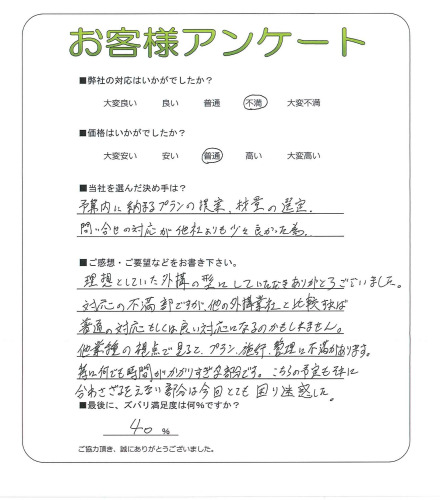 お客様アンケート
■弊社の対応はいかがでしたか？
大変良い 良い 普通 不満 大変不満
■価格はいかがでしたか？
大変安い 安い 普通 高い 大変高い
■当社を選んだ決め手は？
予算内に納まるプランの提案、材量の選定、
問い合せの対応が他社よりも少々良かった為。
■ご感想・ご要望などをお書き下さい。
理想としていた外構の型にしていただきありがとうございました。
対応の不満部ですが、他の外構業社と比較すれば
普通の対応もしくは良い対応になるのかもしれません。
他業種の視点で見ると、プラン、施行、整理に不満があります。
特に何でも時間がかかりすぎる部分です。こちらの予定も特に
合わさざるをえない部分は今回とても困り迷惑した。
■最後に、ズバリ満足度は何%ですか？
40 %
ご協力頂き、誠にありがとうございました。